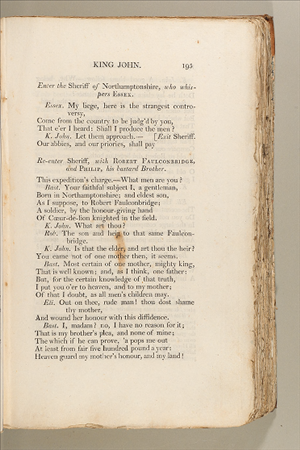 KING JOHN. 195
Enter the Sheriff of Northamptonshire, who whis-
pers ESSEX.
Essex. My liege, here is the strangest contro-
versy,
Come from the country to be judg'd by you,
That e'er I heard: Shall I produce the men?
K. John. Let them approach.— [Exit Sheriff.
Our abbies, and our priories, shall pay
Re-enter Sheriff, with ROBERT FAULCONBRIDGE,
and PHILIP, his bastard Brother.
This expedition's charge.—What men are you?
Bast. Your faithful subject I, a gentleman,
Born in Northamptonshire; and eldest son,
As I suppose, to Robert Faulconbridge;
A soldier, by the honour-giving hand
Of Cœur-de-lion knighted in the field.
K. John. What art thou?
Rob. The son and heir to that same Faulcon-
bridge.
K. John. Is that the elder, and art thou the heir?
You came not of one mother then, it seems.
Bast. Most certain of one mother, mighty king,
That is well known; and, as I think, one father:
But, for the certain knowledge of that truth,
I put you o'er to heaven, and to my mother;
Of that I doubt, as all men's children may.
Eli. Out on thee, rude man! thou dost shame
thy mother,
And wound her honour with this diffidence.
Bast. I, madam? no, I have no reason for it;
That is my brother's plea, and none of mine;
The which if he can prove, 'a pops me out
At least from fair five hundred pound a year:
Heaven guard my mother's honour, and my land!